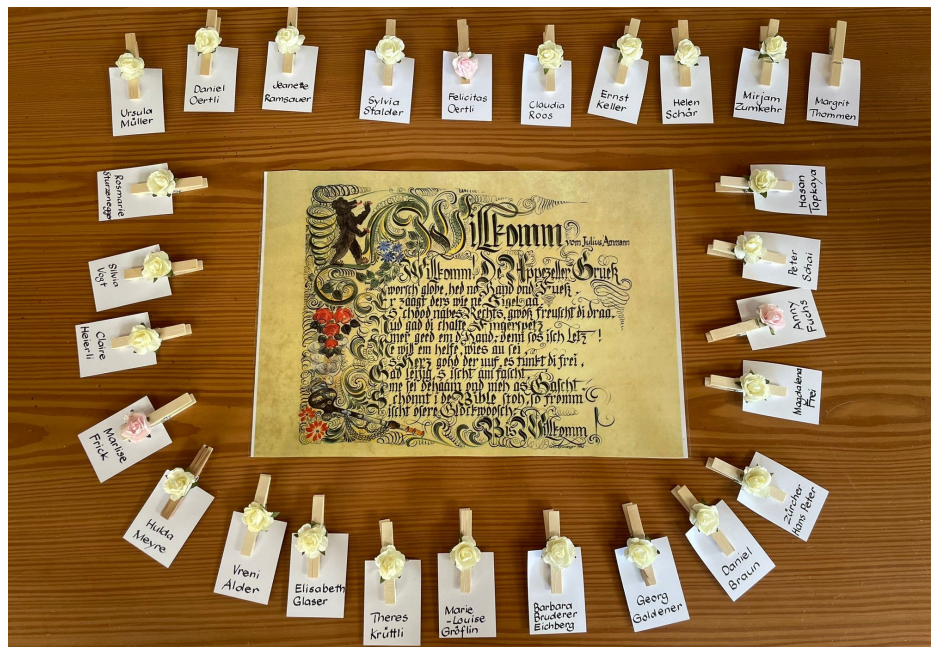 Ursula
Müller
Daniel
Oertli
Jeanette
Ramsauer
Sylvia
Stalder
Felicitas
Oertli
Claudia
Roos
Ernst
Keller
Helen
Schär
Mirjam
Zumkehr
Margrit
Thommen
Rosmarie
Sturzenegger
Silvia
Vogt
Claire
Heierli
Marlise
Frick
Hulda
Meyre
Vreni
Alder
Elisabeth
Glaser
Theres
Krüttli
Marie
-Louise
Gröflin
Barbara
Bruderer
Eichberg
Georg
Goldener
Daniel
Braun
Zürcher
Hans Peter
Magdalena
Frei
Anny
Fuchs
Peter
Schär
Hasan
Topkaya
Willkomm
vom Julius Ammann
Willkomm! De Appezeller Grueß
worsch globe, hed no Hand ond Fueß.
Er zaagt ders wie ne Sigel aa:
S'chood näbes Rechts, gwöß freuscht di draa.
Ond gad di chalte Fingerspetz
nmer geed em d'Hand, denn sös isch letz!
Me will em helfe, wies au sei,
s'Herz gohd der uuf, es tunkt di frei,
Gad lejig, s ischt am fascht,
ome sei dehaam ond nüd as Gascht
Schönnt i de Bible stoh, so fromm
ischt ösere Glöckwoosch:
Bis Willkomm!